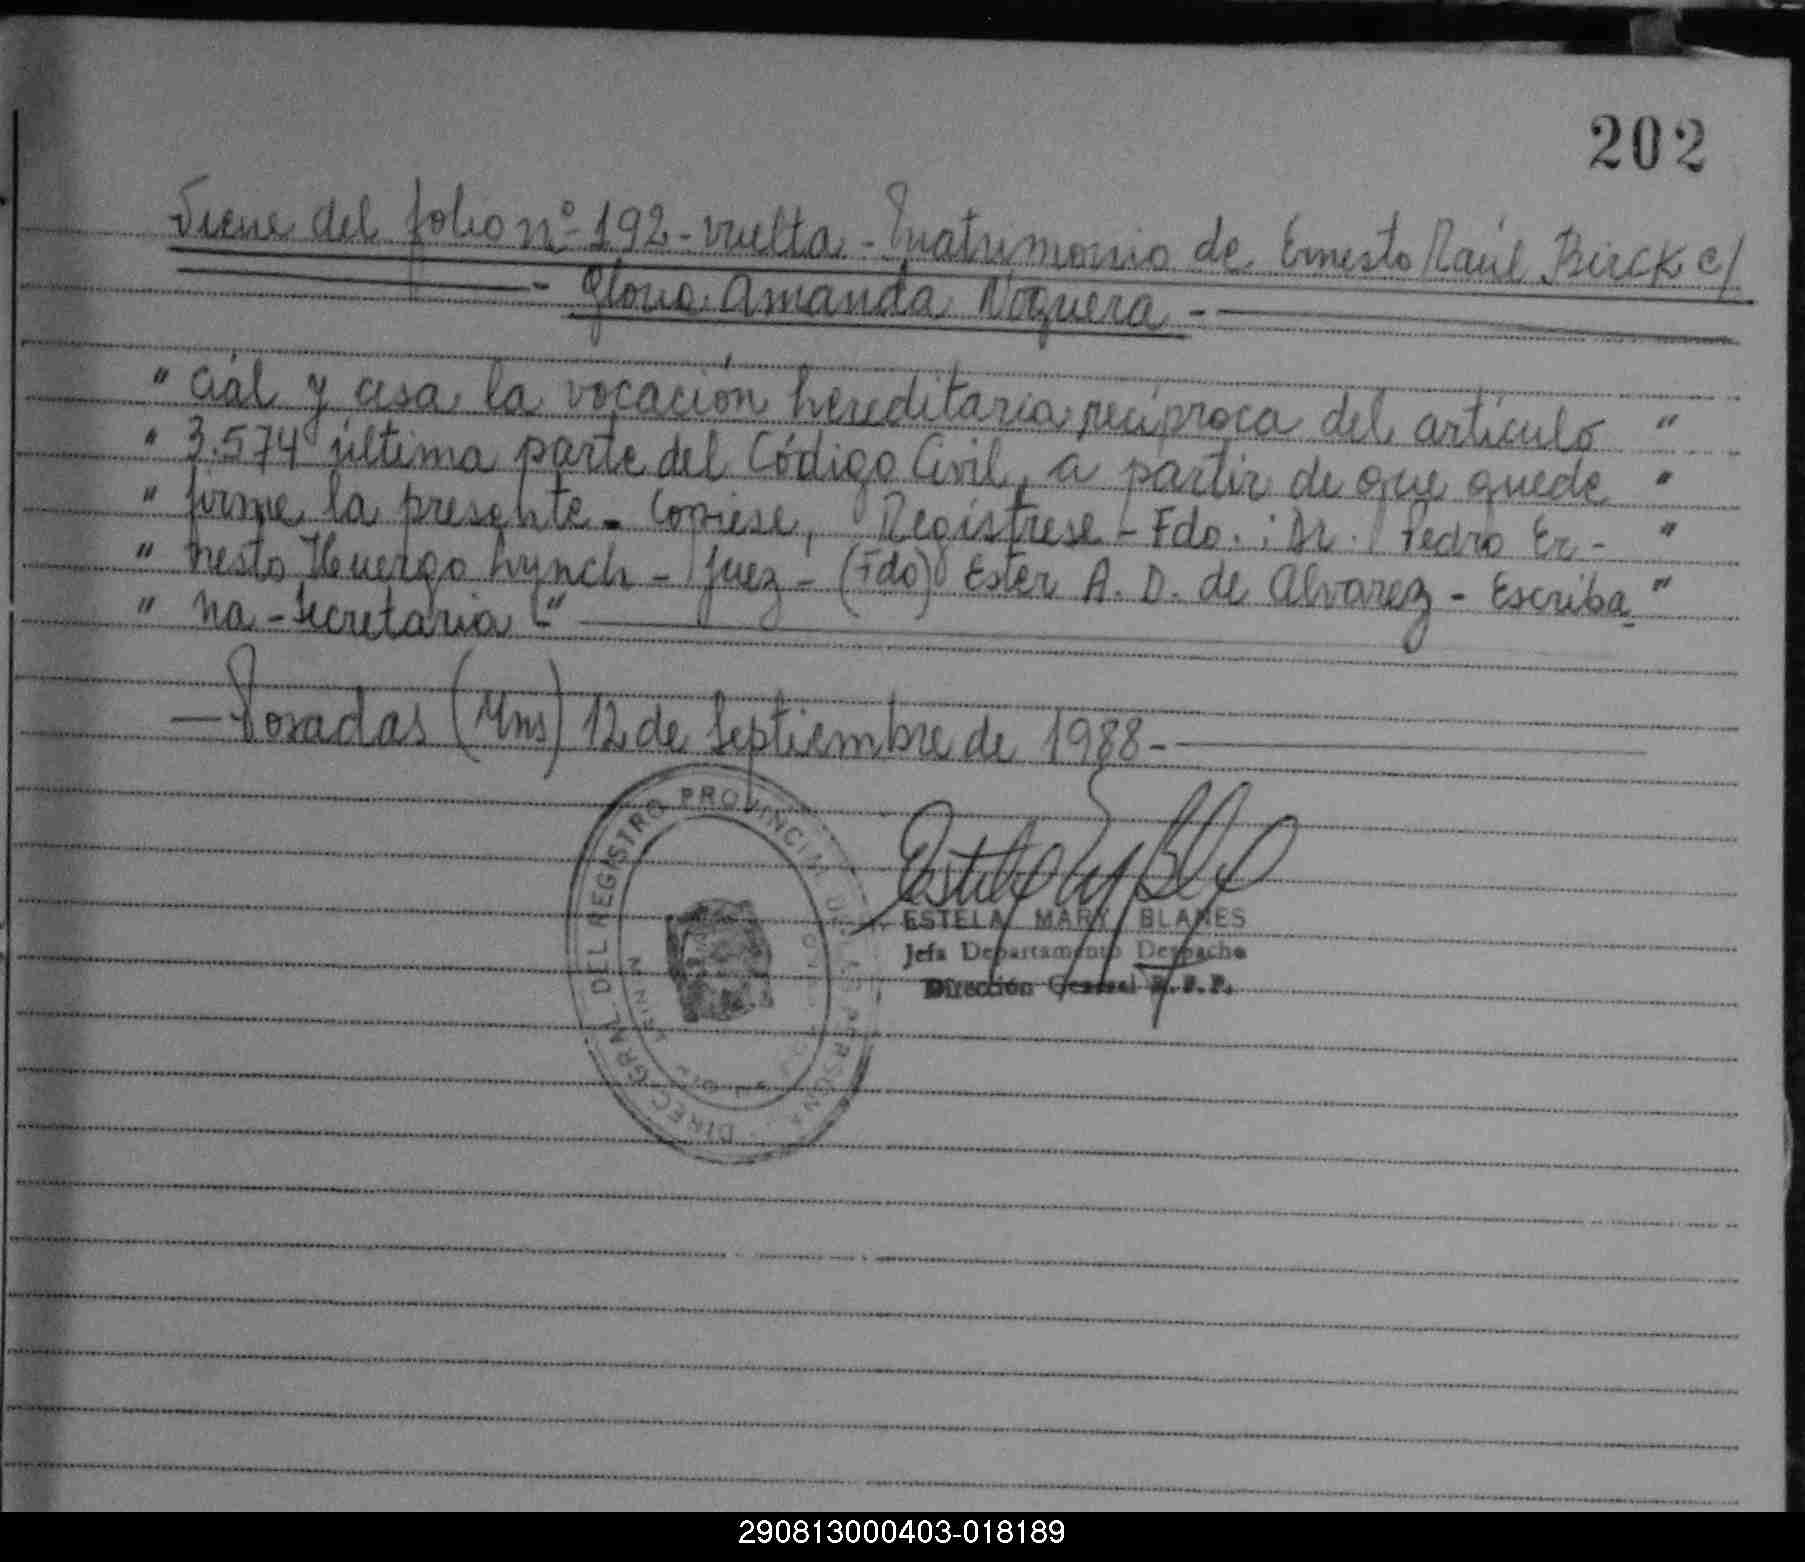 202
Viene del folio nº 192 - vuelta - Matrimonio de Ernesto Raúl Birck c/
- Gloria Amanda Noguera -
" cial y cesa la vocación hereditaria recíproca del artículo "
" 3.574 última parte del Código Civil, a partir de que quede "
" firme la presente - Copiese, Regístrese - Fdo. : Dr. Pedro Er- "
" nesto Huergo Lynch - Juez - (Fdo) Ester A. D. de Alvarez - Escriba "
" na - Secretaria - "
— Posadas (Mns) 12 de Septiembre de 1988 -
DIREC. GRAL. DEL REGISTRO PROVINCIAL DE LAS PERSONAS
ESTELA MARY BLANES
Jefa Departamento Despacho
Dirección General R. P. P.
290813000403-018189